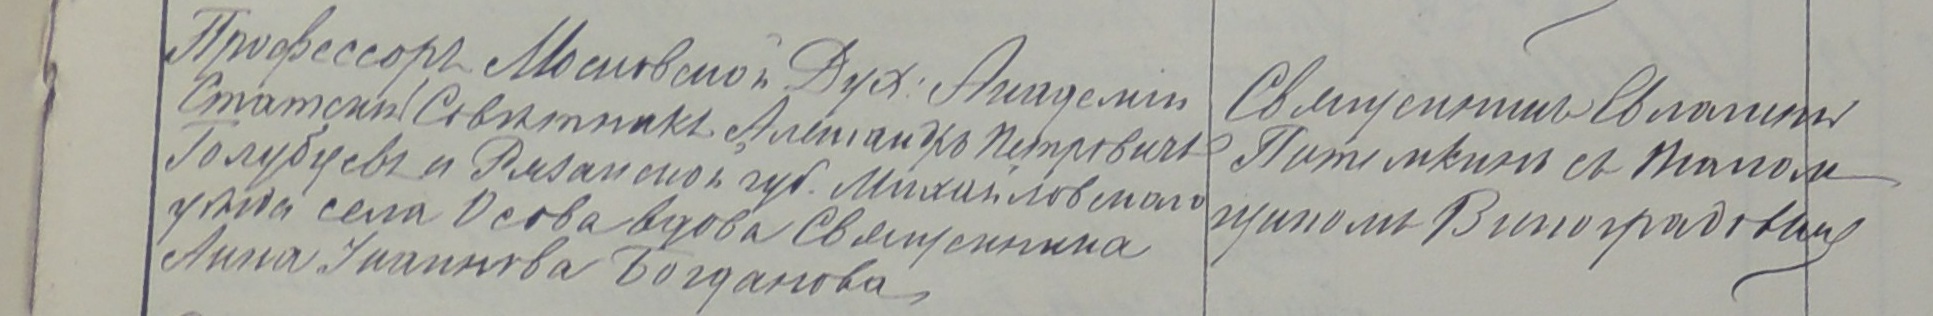 Профессоръ Московской Дух: Академіи
Статскій Совѣтникъ Александръ Петровичъ
Голубцевъ и Рязанской губ. Михайловскаго
уѣзда села Осова вдова Священника
Анна Іоаннова Богданова
Священникъ Евлампій
Потемкинъ съ Псалом
щикомъ Виноградовымъ